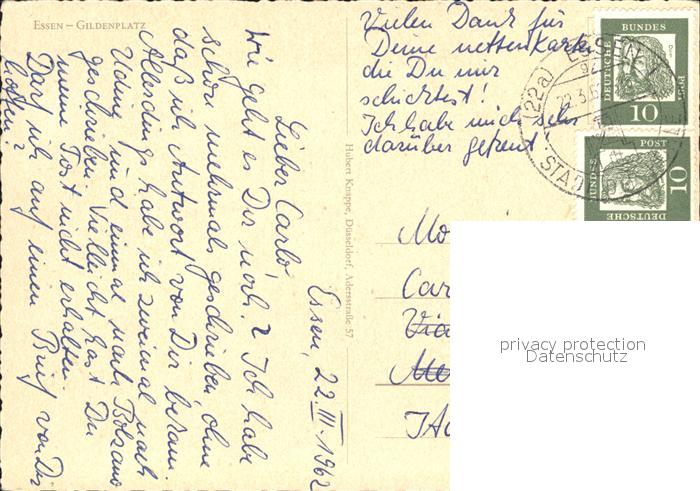 ESSEN – GILDENPLATZ
Essen, 22.III.1962
Lieber Carlo
wie geht es Dir noch? Ich habe
schon mehrmals geschrieben, ohne
daß ich Antwort von Dir bekam.
Allerdings habe ich zweimal nach
Uding und einmal nach Bolzano
geschrieben. Vielleicht hast Du
meine Post nicht erhalten.
Darf ich auf einen Brief von Dir
hoffen?
Vielen Dank für
Deine netten Karten
die Du mir
schicktest!
Ich habe mich sehr
darüber gefreut
Hubert Knippe, Düsseldorf, Adersstraße 57
DEUTSCHE
BUNDES
POST
10
DEUTSCHE
BUNDES
POST
10
(22a) ESSEN
22.3.6
STADT
Mo
Car
Via
Me
IA
privacy protection
Datenschutz